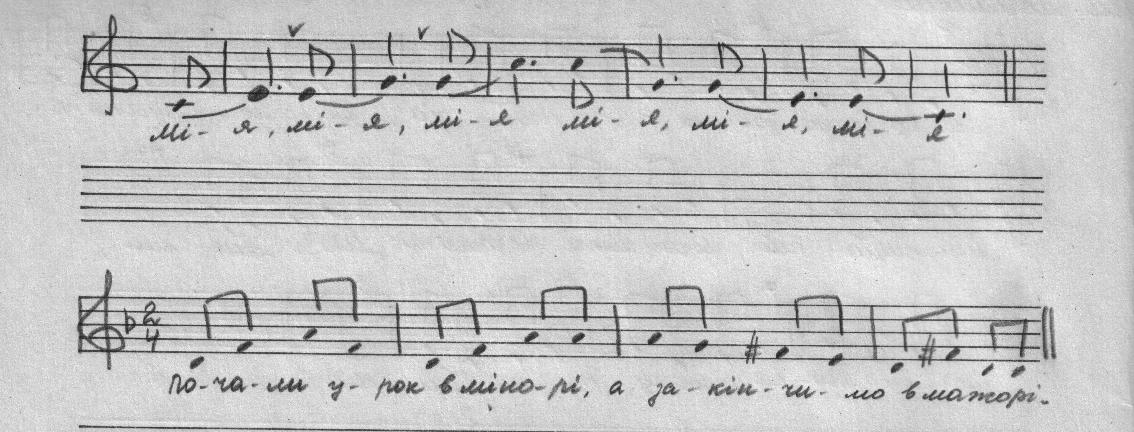 мі - я, мі - я, мі - я мі - я, мі - я, мі - я
2
4
По-ча-ли у-рок в міно-рі, а за-кін-чи-мо в мажорі.